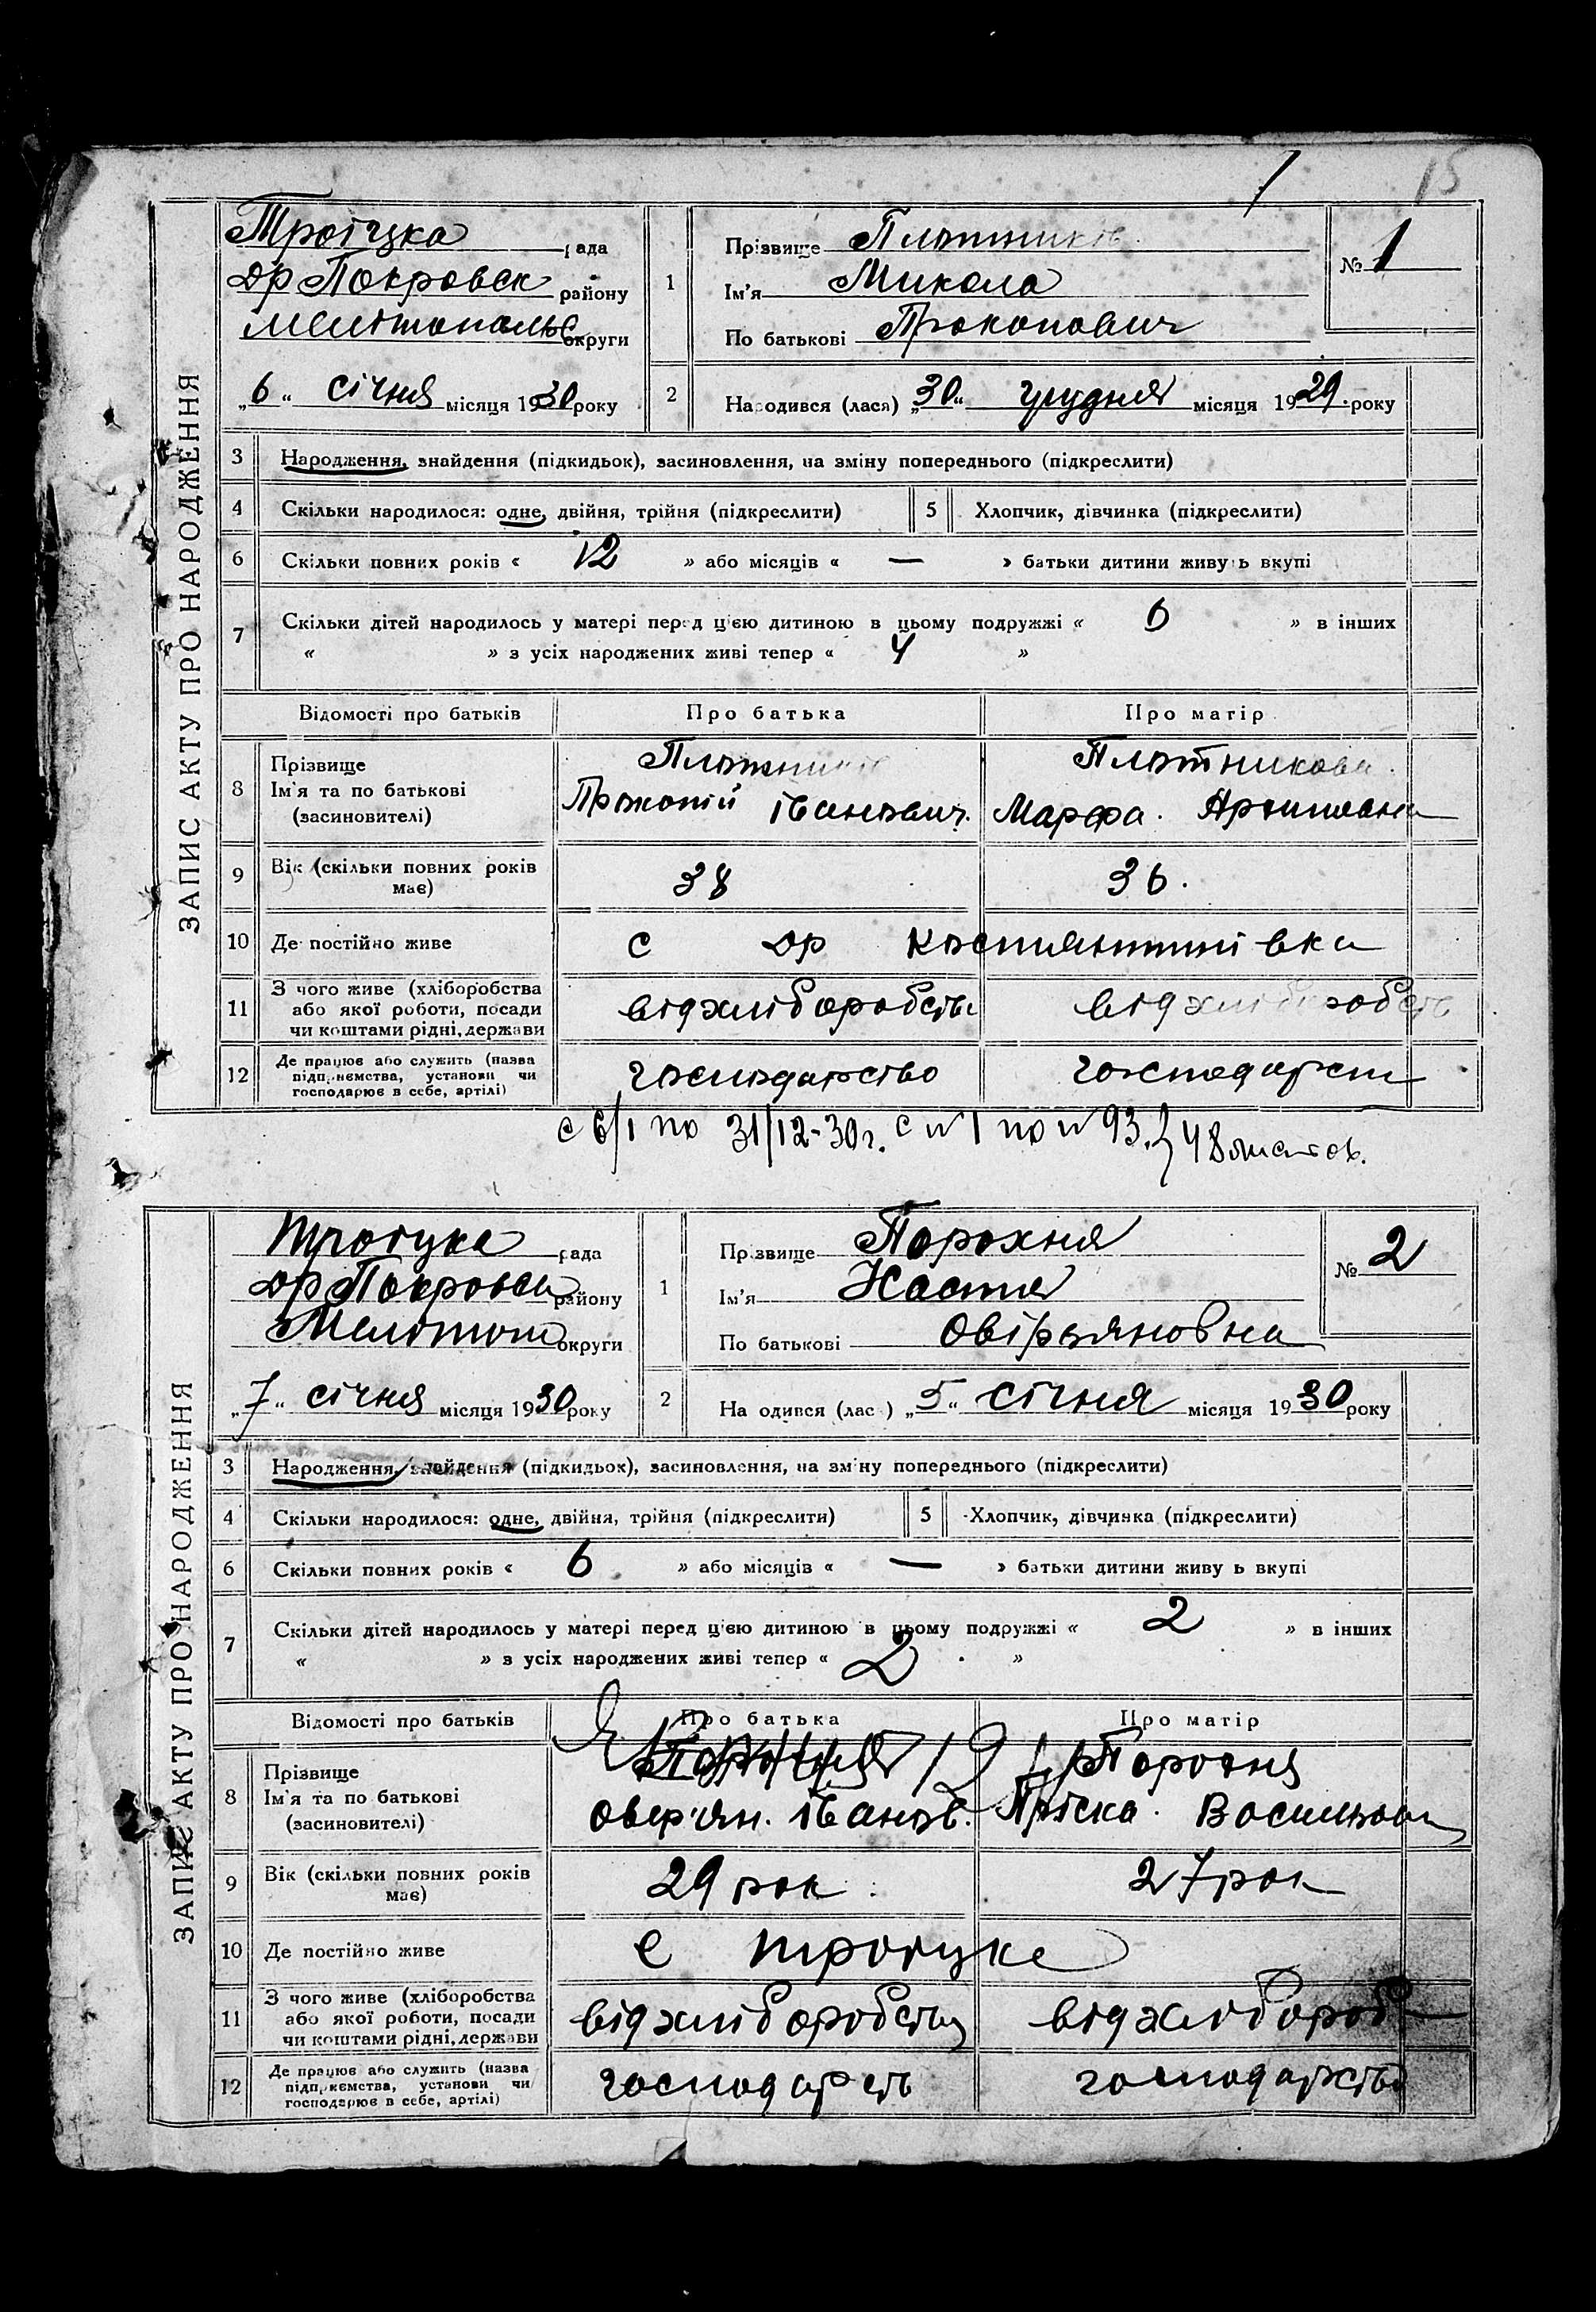 15
ЗАПИС АКТУ ПРО НАРОДЖЕННЯ
Троїцка рада
др Покровск району
Мелітопольс округи
„6“ січня місяця 1930 року
1 Прізвище Плотників
Ім'я Микола
По батькові Прокопович
№ 1
2 Народився (лася) „30“ грудня місяця 1929 року
3 Народження, знайдення (підкидьок), засиновлення, на зміну попереднього (підкреслити)
4 Скільки народилося: одне, двійня, трійня (підкреслити) 5 Хлопчик, дівчинка (підкреслити)
6 Скільки повних років « 12 » або місяців « — » батьки дитини живуть вкупі
7 Скільки дітей народилось у матері перед цією дитиною в цьому подружжі « 6 » в інших
« » з усіх народжених живі тепер « 4 »
Відомості про батьків Про батька Про матір
8 Прізвище
Ім'я та по батькові
(засиновителі)
Плотник
Прокопій Іванович.
Плотникова
Марфа.
9 Вік (скільки повних років
має)
38 36.
10 Де постійно живе с др Костянтинівка
11 З чого живе (хліборобства
або якої роботи, посади
чи коштами рідні, держави
від хліборобств від хлібороб
12 Де працює або служить (назва
підприємства, установи чи
господарює в себе, артілі)
господарство господарст
с 6/1 по 31/12-30г. с №1 по №93. 48 листов.
ЗАПИС АКТУ ПРО НАРОДЖЕННЯ
Троїцка рада
др Покровск району
Мелітоп округи
„7“ січня місяця 1930 року
1 Прізвище Порохня
Ім'я Настя
По батькові Овірьяновна
№ 2
2 Народився (лася) „5“ січня місяця 1930 року
3 Народження, знайдення (підкидьок), засиновлення, на зміну попереднього (підкреслити)
4 Скільки народилося: одне, двійня, трійня (підкреслити) 5 Хлопчик, дівчинка (підкреслити)
6 Скільки повних років « 6 » або місяців « — » батьки дитини живуть вкупі
7 Скільки дітей народилось у матері перед цією дитиною в цьому подружжі « 2 » в інших
« » з усіх народжених живі тепер « 2 »
Відомості про батьків Про батька Про матір
8 Прізвище
Ім'я та по батькові
(засиновителі)
Овер'ян. Іванов.
Порохня
Пріска. Васильовн
9 Вік (скільки повних років
має)
29 рок 27 рок
10 Де постійно живе с Троїцке
11 З чого живе (хліборобства
або якої роботи, посади
чи коштами рідні, держави
від хліборобству від хлібороб
12 Де працює або служить (назва
підприємства, установи чи
господарює в себе, артілі)
господарств господарство